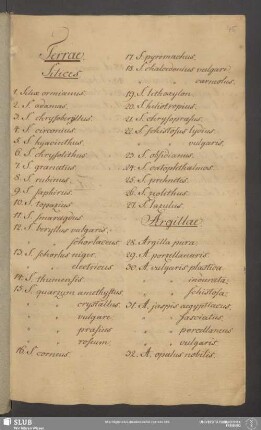 Terrae
Silices
1. Silex ormianus.
2. S. adamas.
3. S. chrysoberyllus
4. S. circonius
5. S. hyacinthus
6. S. chrysolithus
7. S. granatus
8. S. rubinus
9. S. saphirus
10. S. topazius
11. S. smaragdus
12. S. beryllus vulgaris,
schorlaceus
13. S. schorlus niger
electricus
14. S. thumensis
15. S. quarzum amethystus
" " crystallus
" " vulgare
" " prasius
" " roseum
16. S. corneus.
17. S. pyromachus.
18. S. chalcedonius vulgaris
" " carneolus.
19. S. lithoxylon.
20. S. heliotropius.
21. S. chrysoprasus.
22. S. schistosus lydius
" " vulgaris.
23. S. obsidianus.
24. S. catophthalmus
25. S. prehnites.
26. S. zeolithus.
27. S. lazulus.
Argillae
28. Argilla pura.
29. A. porcellanaris.
30. A. vulgaris plastica
" " indurata.
" " schistosa.
31. A. jaspis aegyptiacus.
" " fasciatus
" " porcellaneus
" " vulgaris
32. A. opalus nobilis.
SLUB